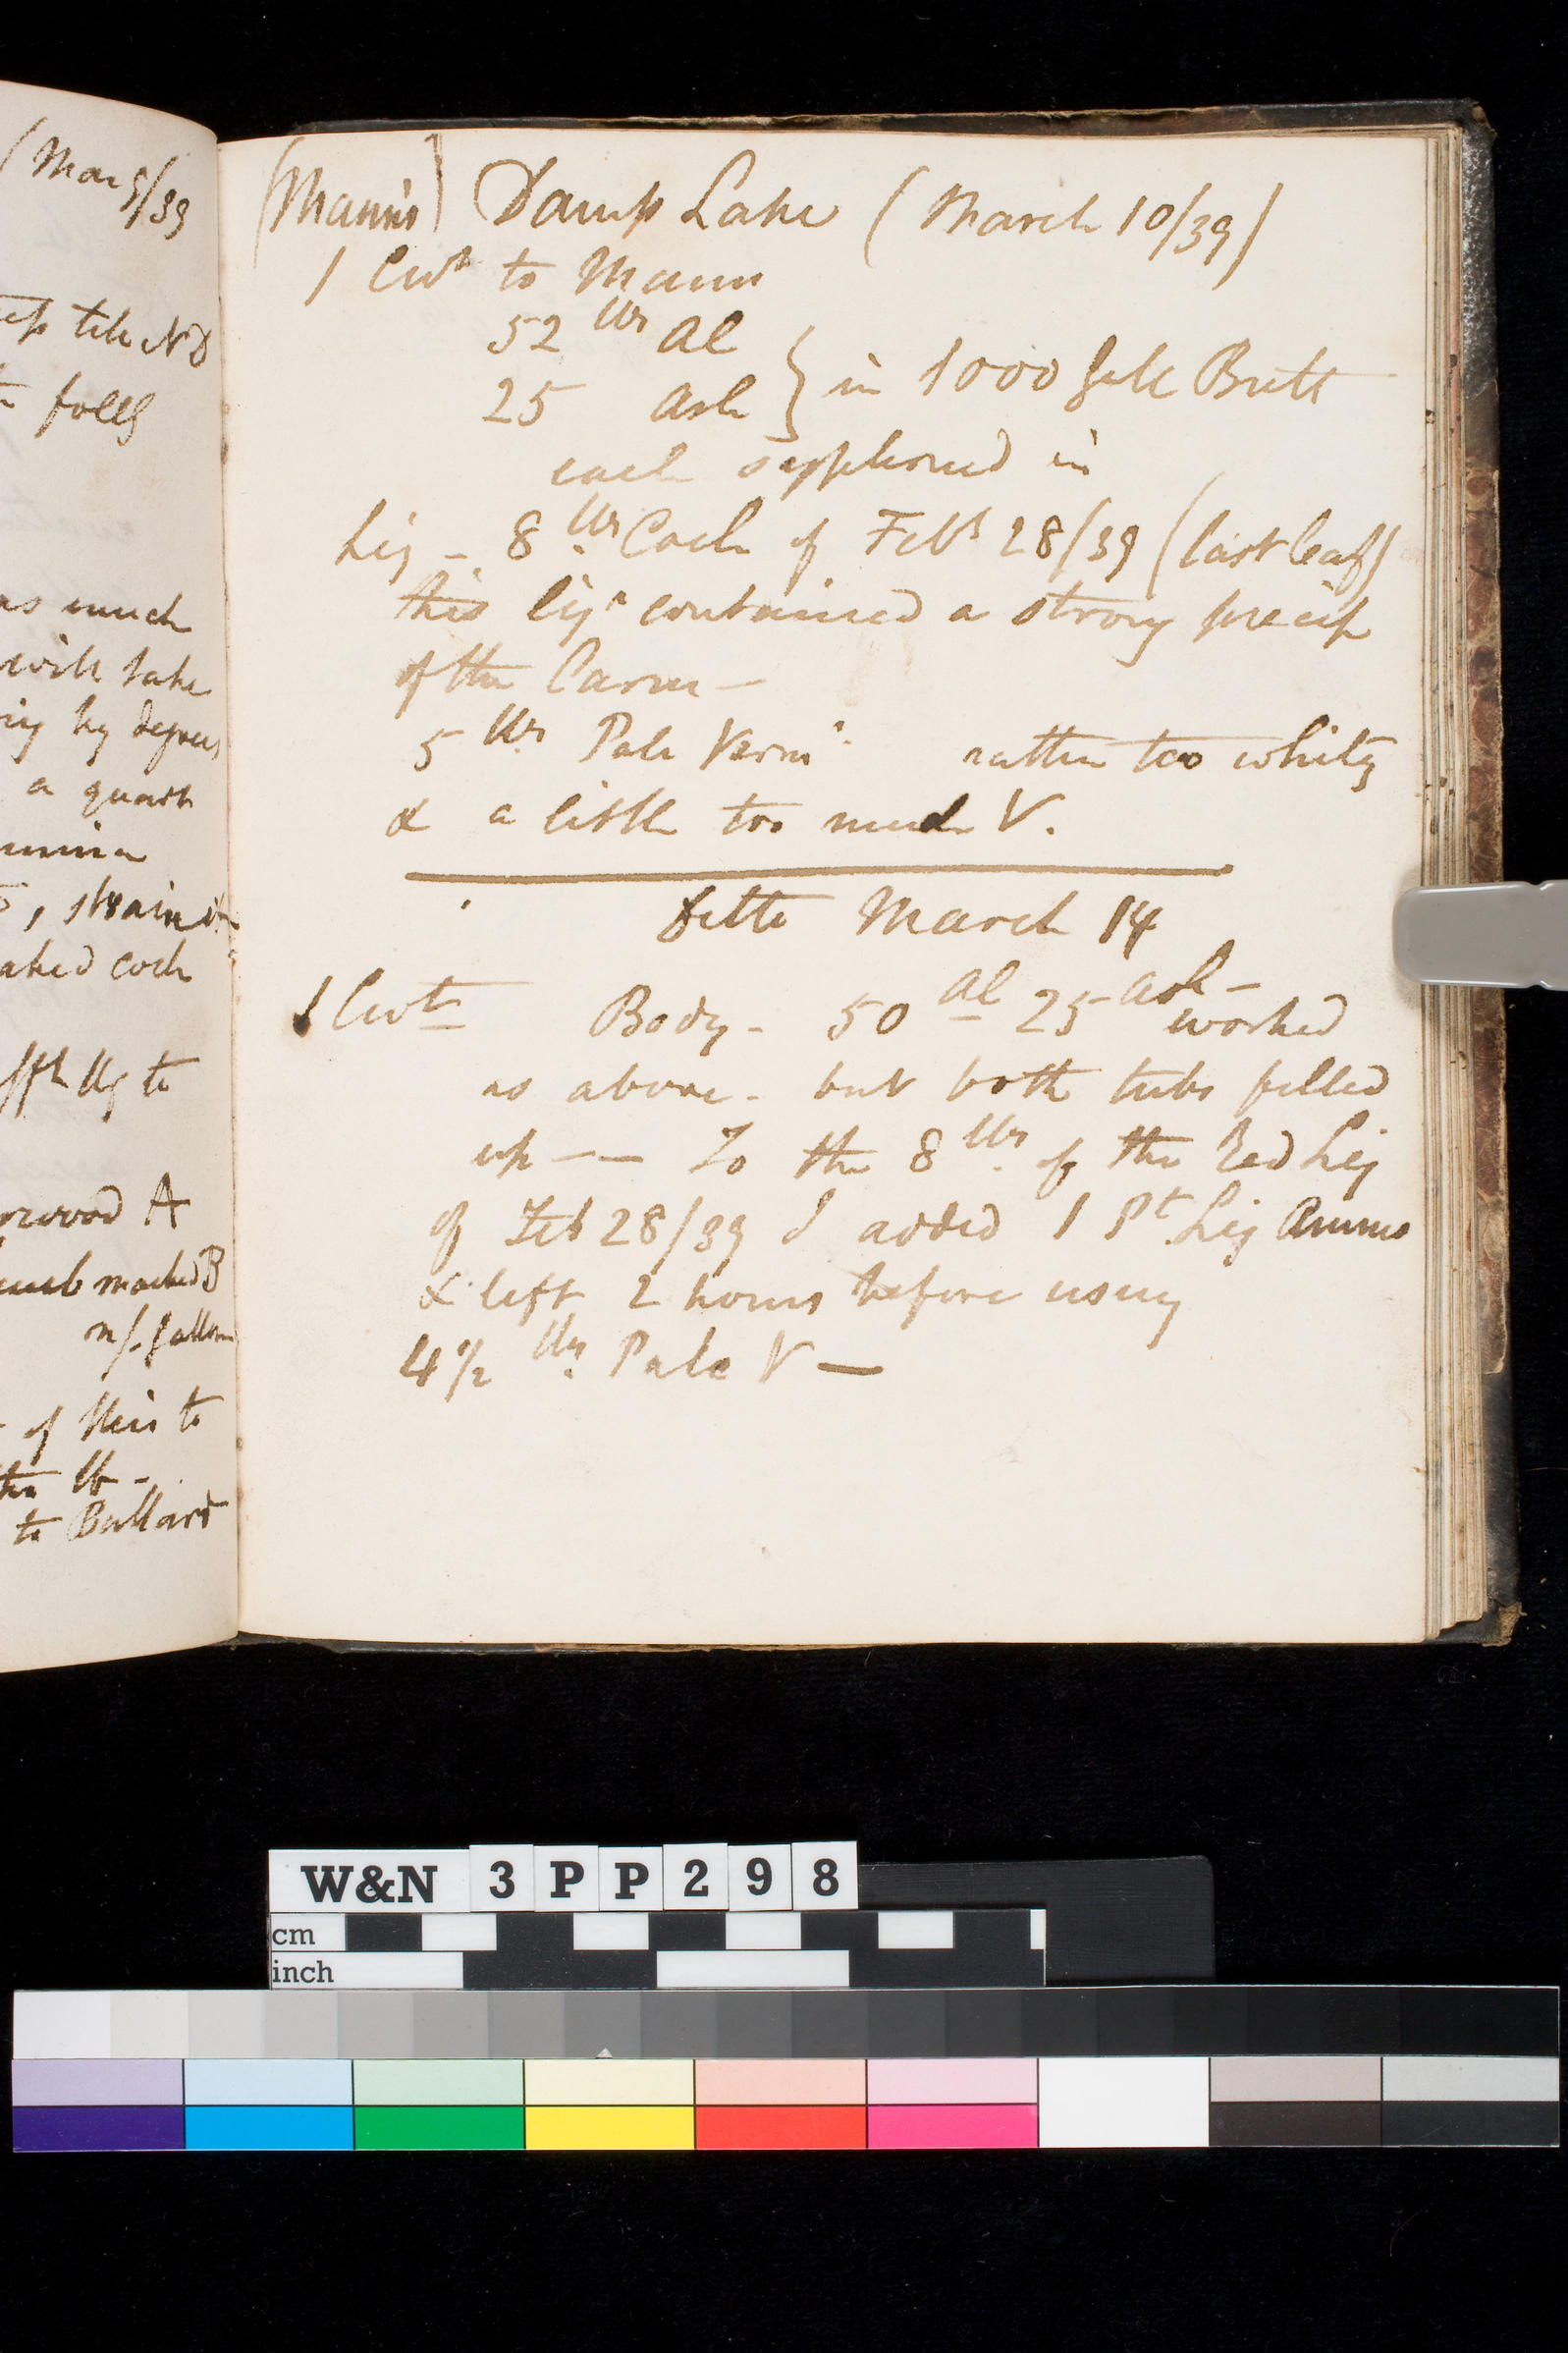 (Mar 9/39
till ND
falls
as much
will take
by degrees
a quart
, strained
cock
lb to
wood A
marked B
gallon
of this to
the lb -
to Bullard
(Mann's) Damp Lake (March 10/39)
1 Cwt to Mann
52 lbs Al
25 Ash } in 1000 Galls Butt
each syphoned in
Liq - 8 lbs Coch of Feby 28/39 (last leaf)
this liqr contained a strong precip
of the Carm -
5 lbs Pale Verm rather too whity
& a little too much V.
Ditto March 14
1 Cwt Body - 50 Al 25 Ash - worked
as above - but both tubs filled
up - - To the 8 lbs of the Red Liq
of Feb 28/39 I added 1 Pt Liq Ammo
& left 2 hours before using
4 1/2 lbs Pale V -
W&N 3PP298
cm
inch